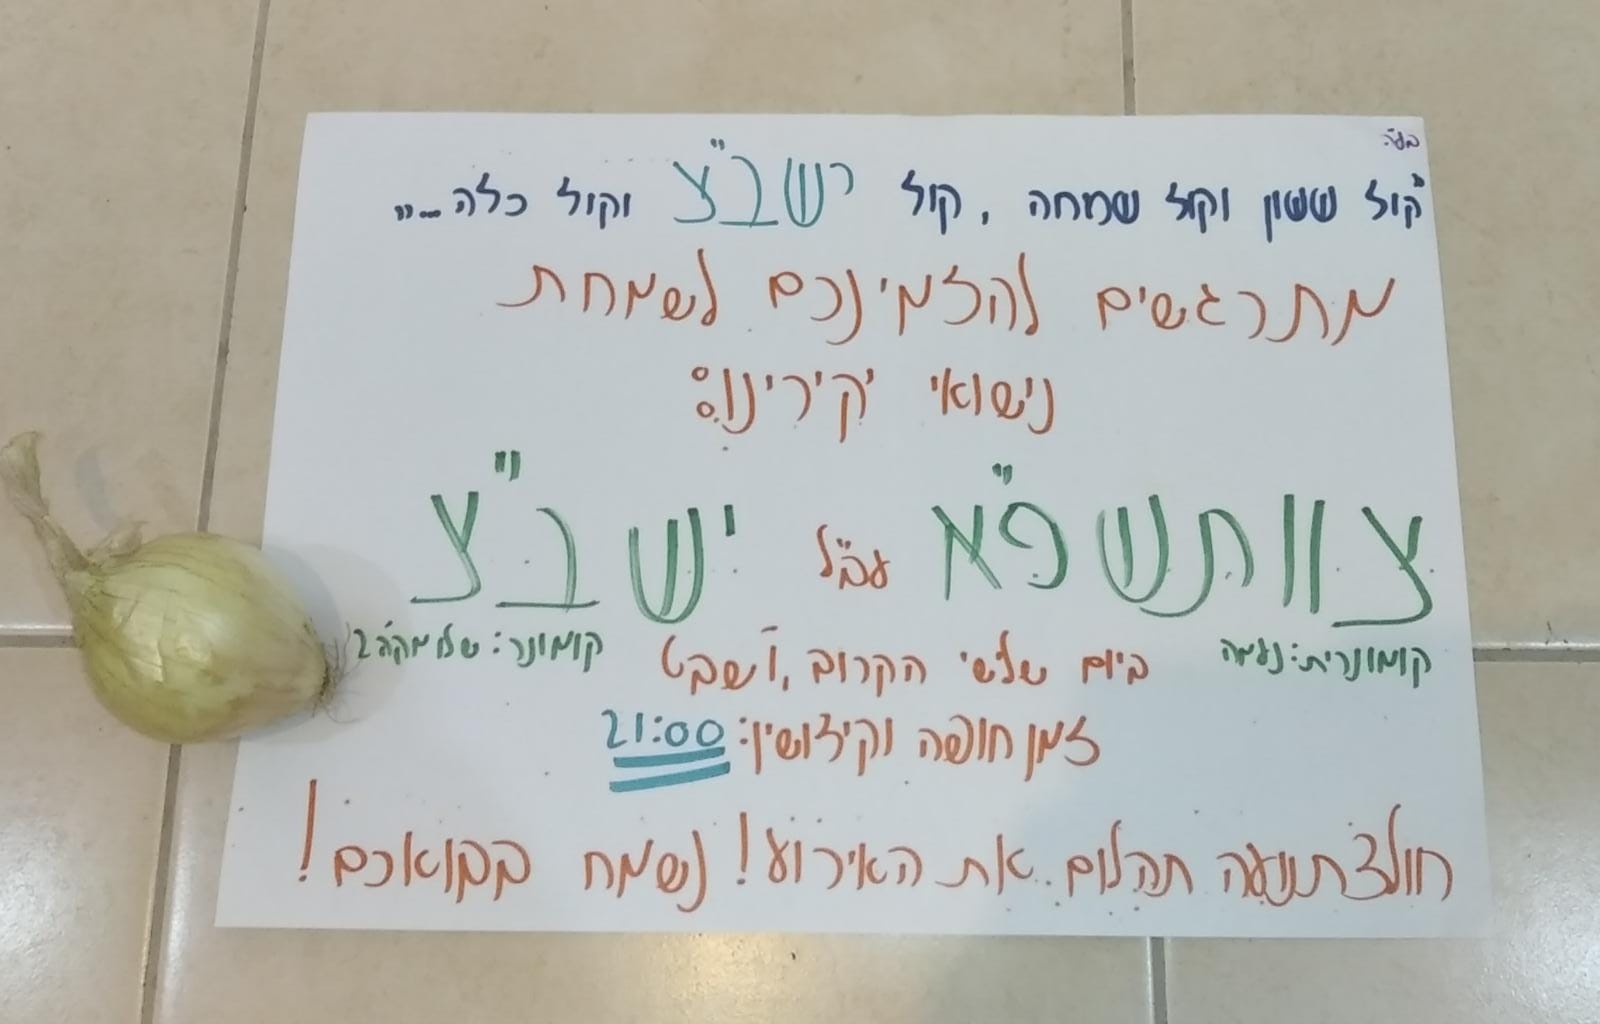 בע"ה
"קול ששון וקול שמחה, קול ישב"צ וקול כלה..."
מתרגשים להזמינכם לשמחת
נישואי יקירינו:
צוותשפ"א עב"ל ישב"צ
קומונרית: נעמה קומונר: שלומקה 2
ביום שלישי הקרוב, ו' שבט
זמן חופה וקידושין: 21:00
חולצת תנועה תהלום את האירוע! נשמח בבואכם!